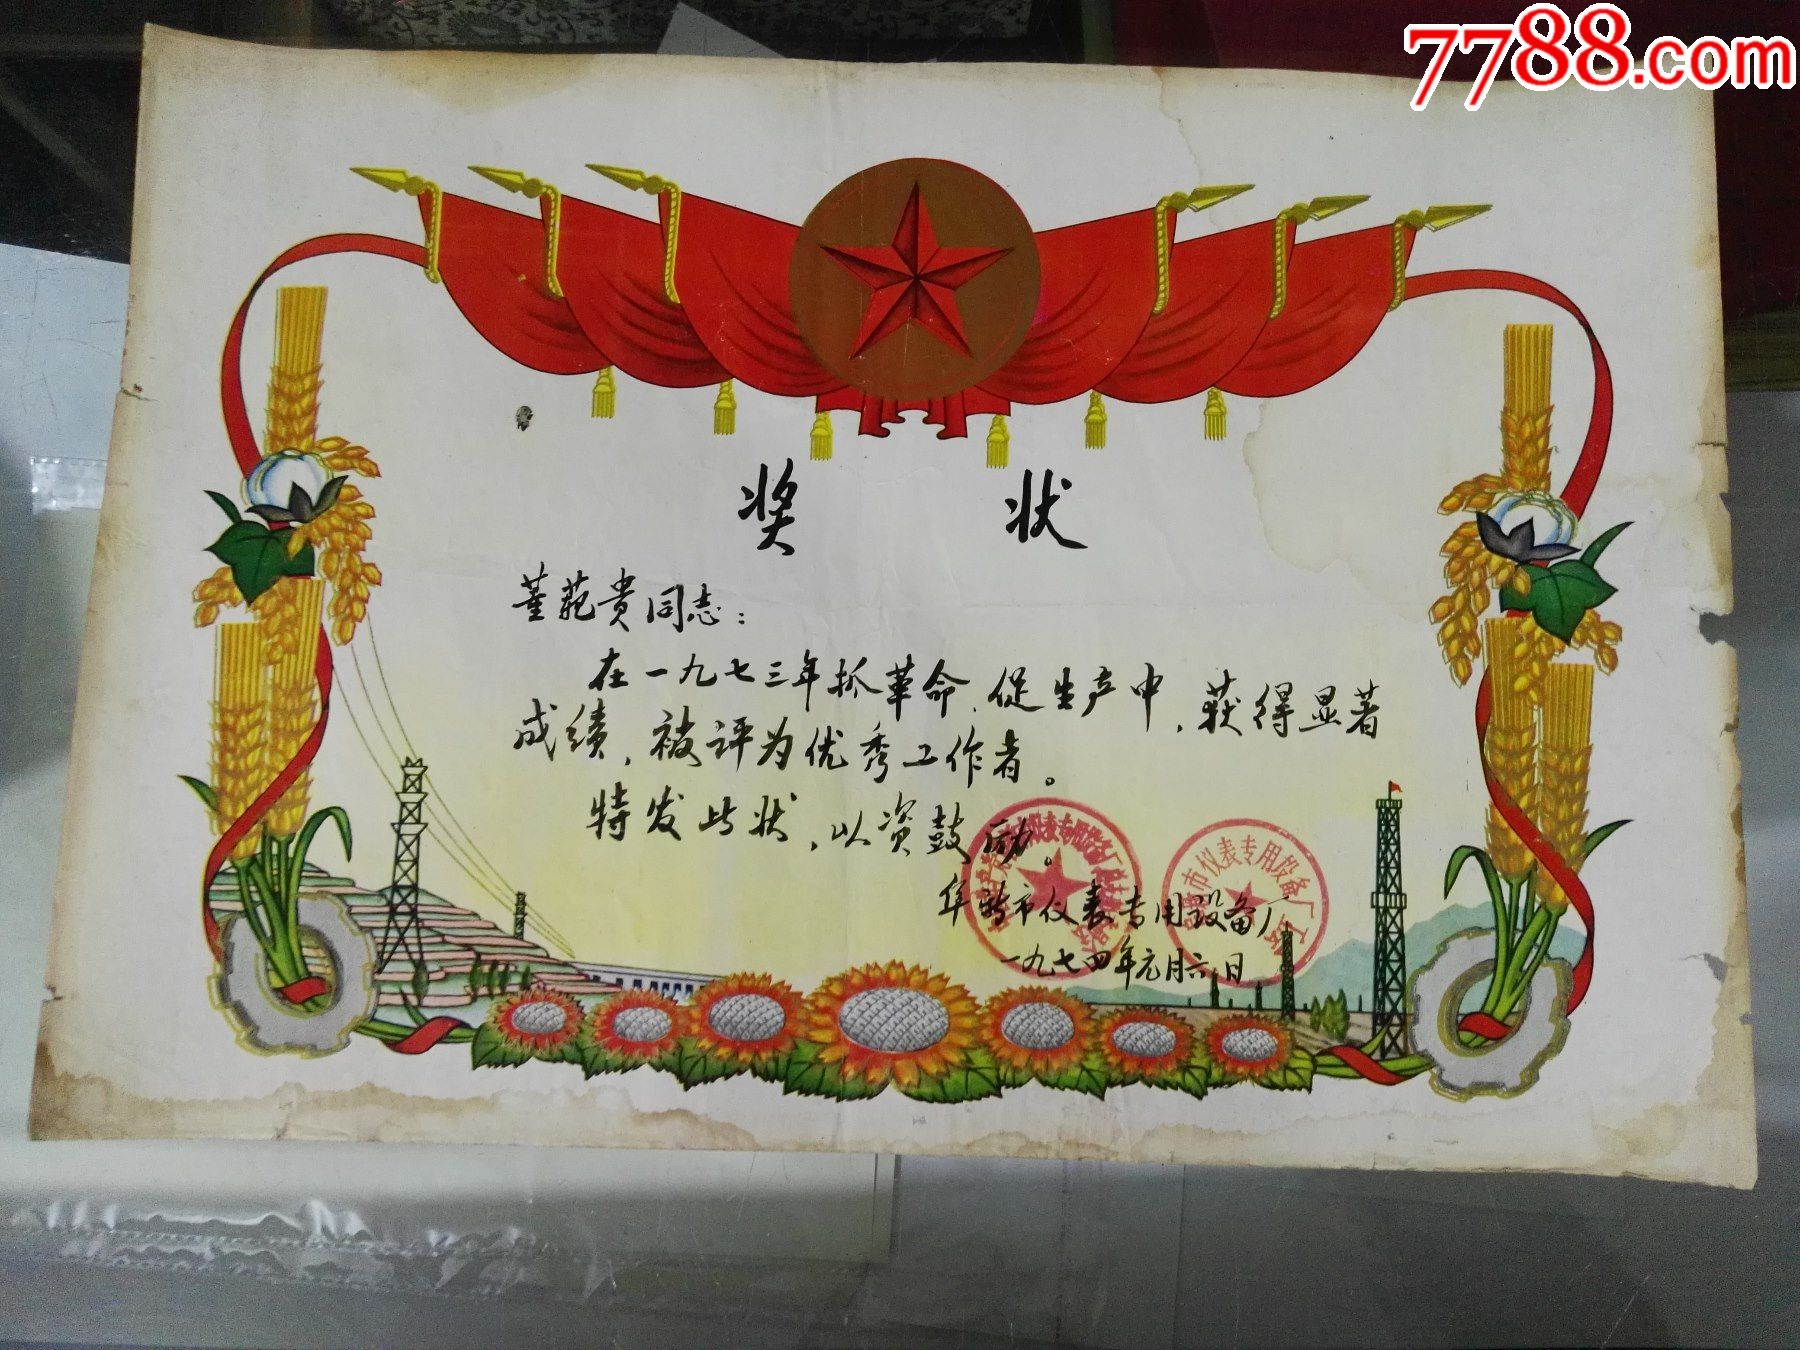 7788.com
奖 状
董范贵同志：
在一九七三年抓革命、促生产中，获得显著
成绩，被评为优秀工作者。
特发此状，以资鼓励。
市仪表专用设备厂
一九七四年元月六日
市仪表专用设备厂